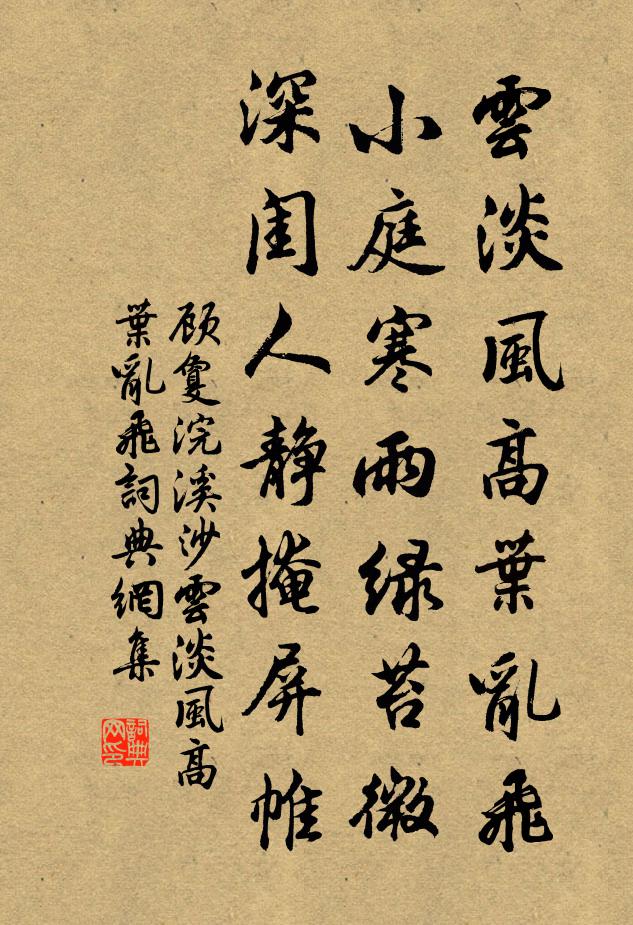 雲淡風高葉亂飛
小庭寒雨綠苔微
深閨人靜掩屏帷
顧夐浣溪沙雲淡風高
葉亂飛詞典網集
詞典网印